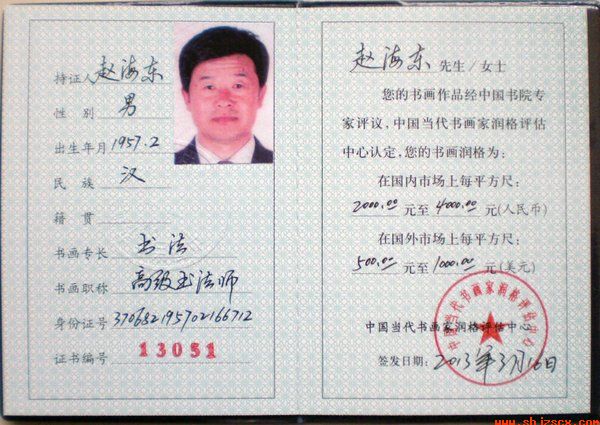 持证人 赵海东
性 别 男
出生年月 1957.2
民 族 汉
籍 贯
书画专长 书法
书画职称 高级书法师
身份证号 370652195702166712
证书编号 13051
赵海东 先生/女士
您的书画作品经中国书院专
家评议，中国当代书画家润格评估
中心认定，您的书画润格为：
在国内市场上每平方尺：
2000.00 元至 4000.00 元(人民币)
在国外市场上每平方尺：
500.00 元至 1000.00 元(美元)
中国当代书画家润格评估中心
中国当代书画家润格评估中心
签发日期：2013年3月16日
www.shjzscx.com